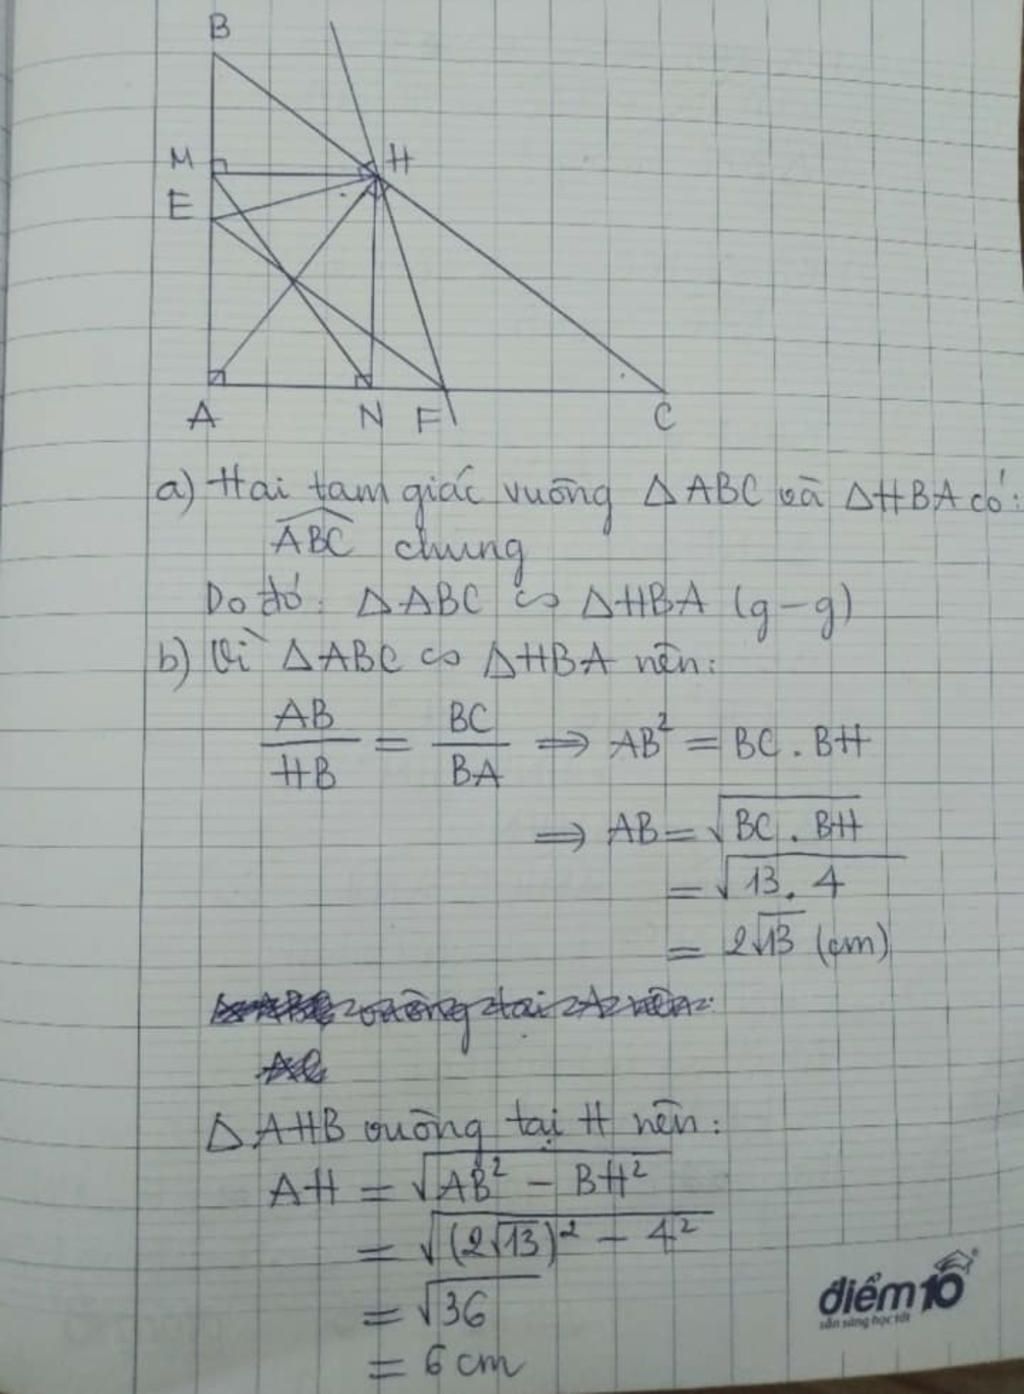 B
M
H
E
A N F C
a) Hai tam giác vuông △ABC và △HBA có:
ABC chung
Do đó: △ABC ∽ △HBA (g-g)
b) Vì △ABC ∽ △HBA nên:
AB/HB = BC/BA ⇒ AB² = BC . BH
⇒ AB = √BC . BH
= √13 . 4
= 2√13 (cm)
△AHB vuông tại H nên:
AH = √AB² - BH²
= √(2√13)² - 4²
= √36
= 6 cm
điểm10
sẵn sàng học tốt